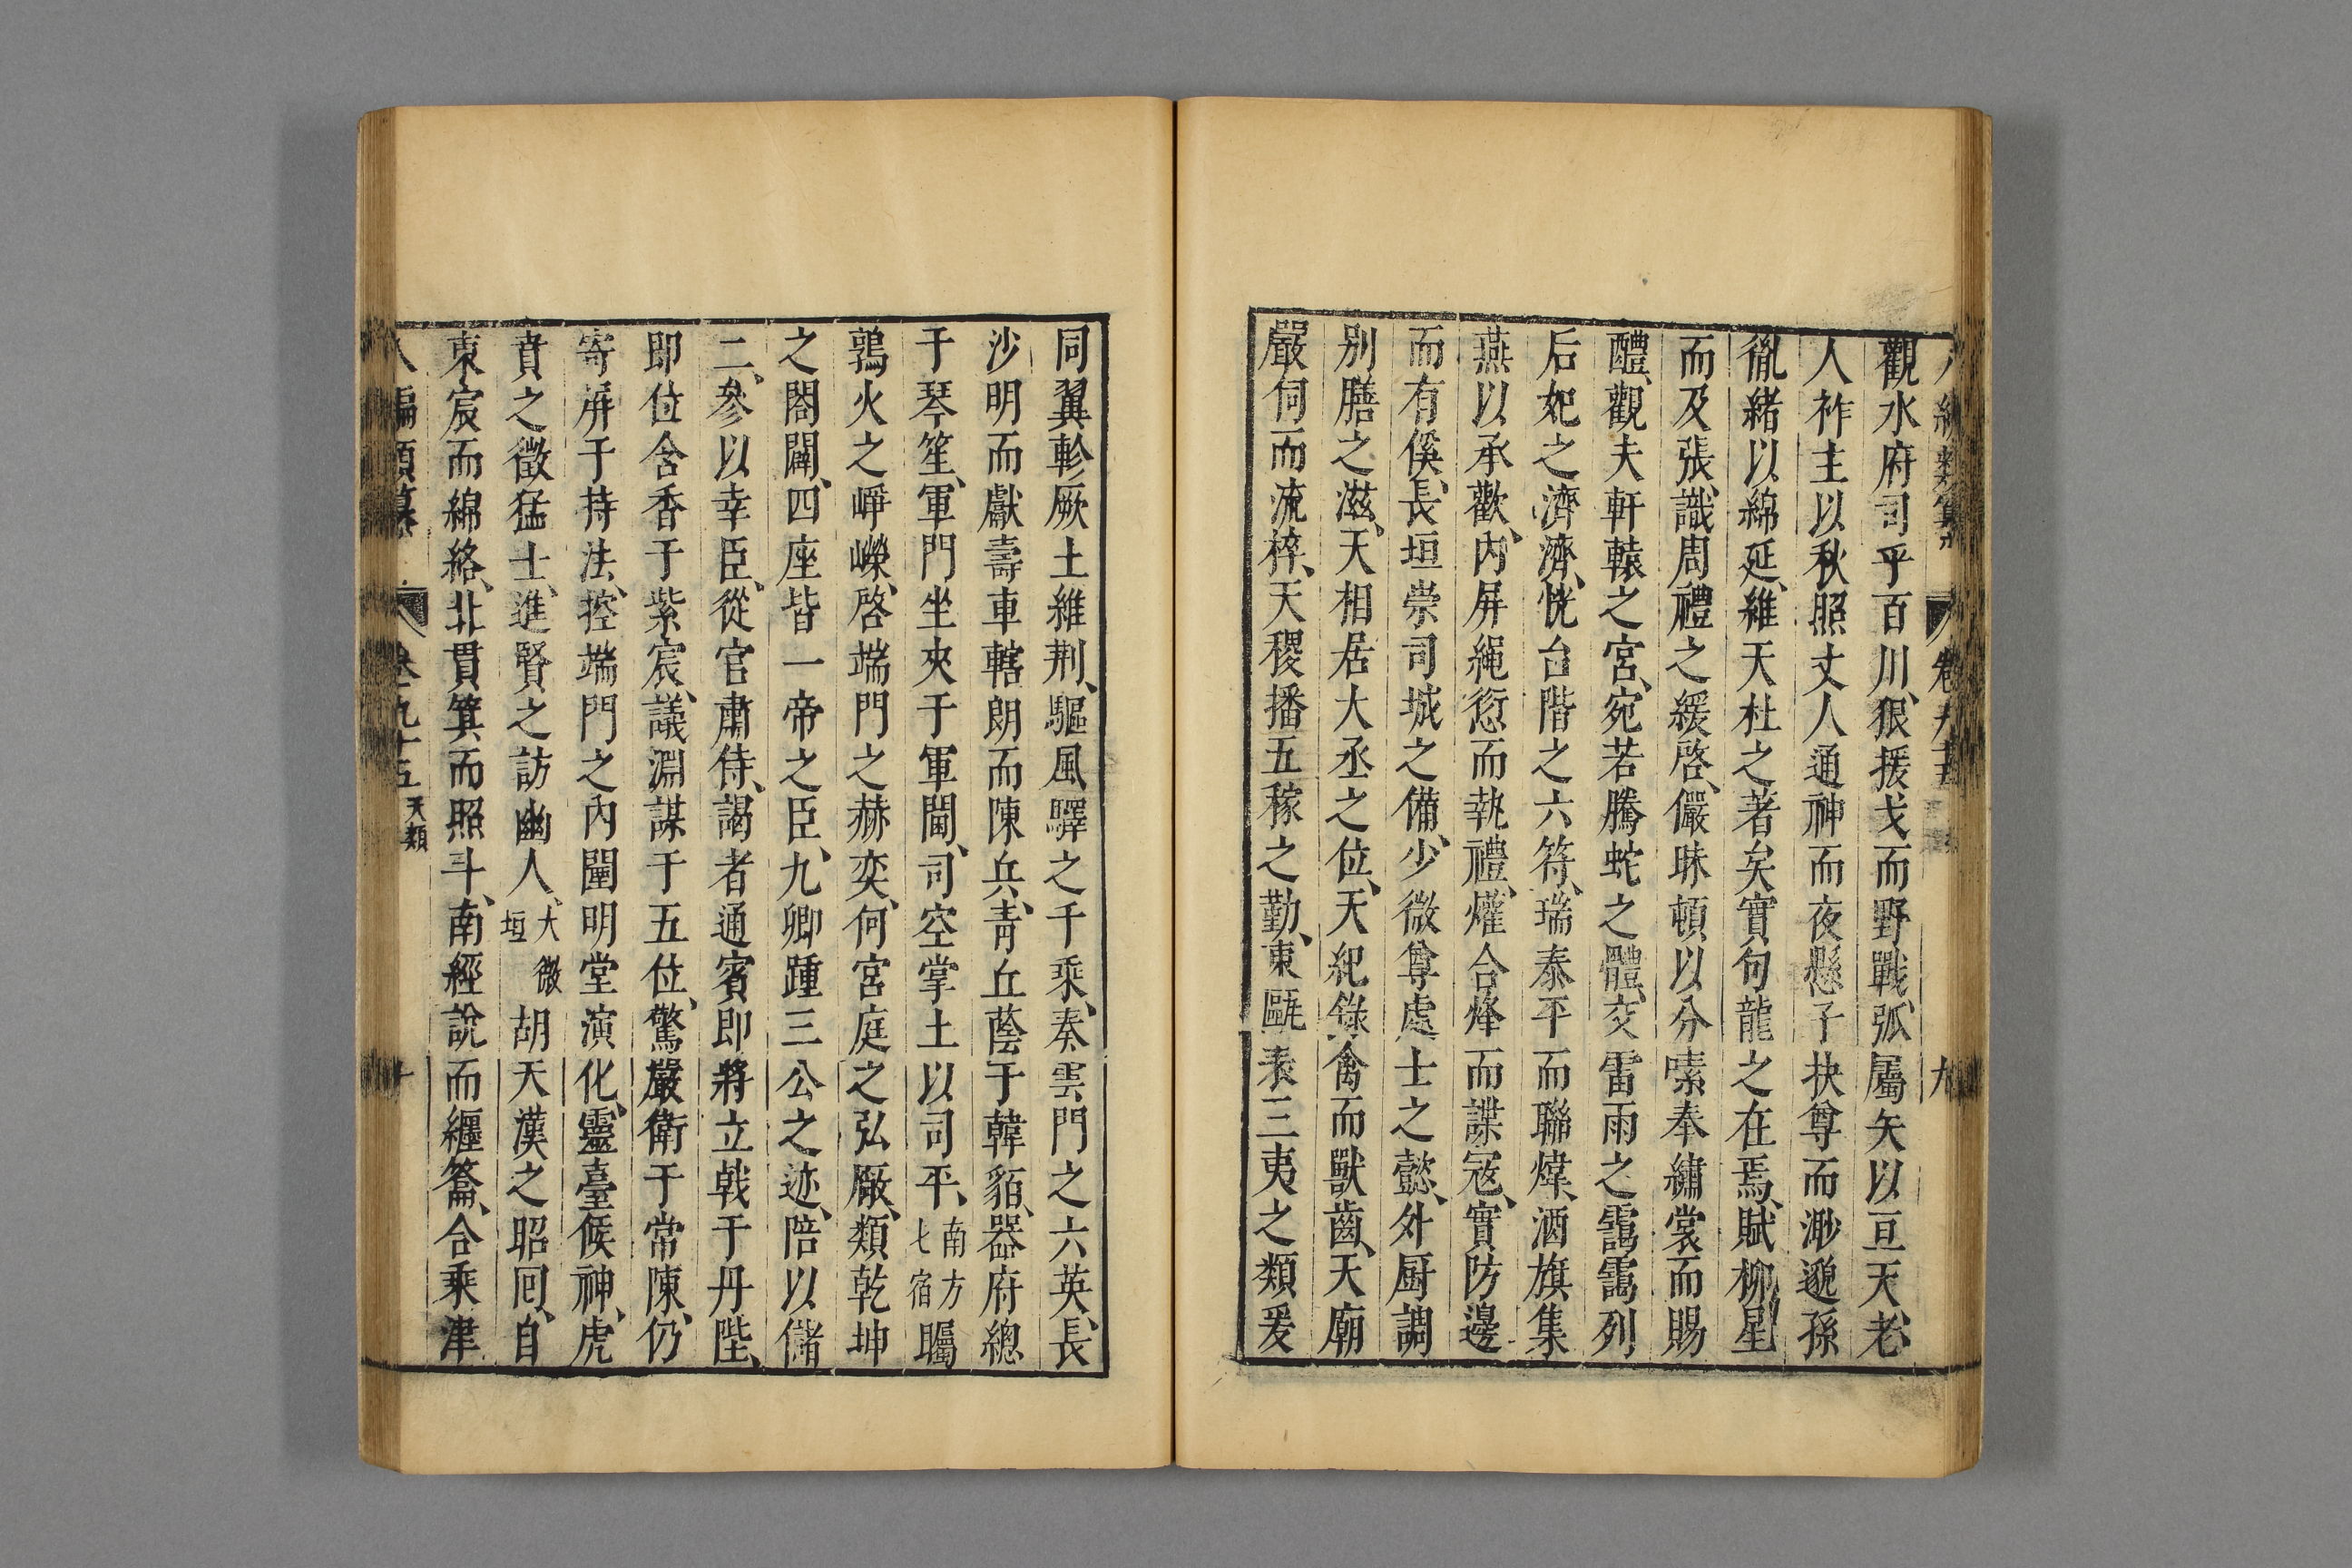 觀水府司乎百川、狠援戈而野戰、弧屬矢以亘天、老
人祚主以秋照丈人通神而夜懸子抉尊而渺邈孫
胤緒以綿延、維天社之著矣實句龍之在焉、賦柳星
而及張、識周禮之緩啓、儼昧頓以分嗉奉繡裳而賜
醴、觀夫軒轅之宮、宛若騰蛇之體、交雷雨之靄靄列
后妃之濟濟、恍台階之六符、瑞泰平而聯煒、酒旗集
燕以承歡、內屏繩愆而執禮、爟合烽而諜冦、實防邊
而有傒、長垣崇司城之備、少微尊處士之懿、外厨調
別膳之滋、天相居大丞之位、天紀錄禽而獸齒、天廟
嚴伺而流祥、天稷播五稼之勤、東甌表三夷之類爰
同翼軫厥土維荆、驅風驛之千乘、奏雲門之六英、長
沙明而獻壽車轄朗而陳兵、青丘蔭于韓貊、器府總
于琴笙、軍門坐夾于軍閫、司空掌土以司平、南方七宿矚
鶉火之崢嶸、啓端門之赫奕、何宮庭之弘厰、類乾坤
之闔闢、四座皆一帝之臣、九卿踵三公之迹、陪以儲
二、參以幸臣、從官肅侍、謁者通賓即將立戟于丹陛、
即位含香于紫宸、議淵謀于五位、驚嚴衛于常陳、仍
寄屏于持法、控端門之內闈明堂演化、靈臺候神、虎
賁之徵猛士、進賢之訪幽人、大微垣胡天漢之昭囘、自
東宸而綿絡、北貫箕而照斗、南經說而纏籥、合乘津
八編類纂 卷之九十五 天類